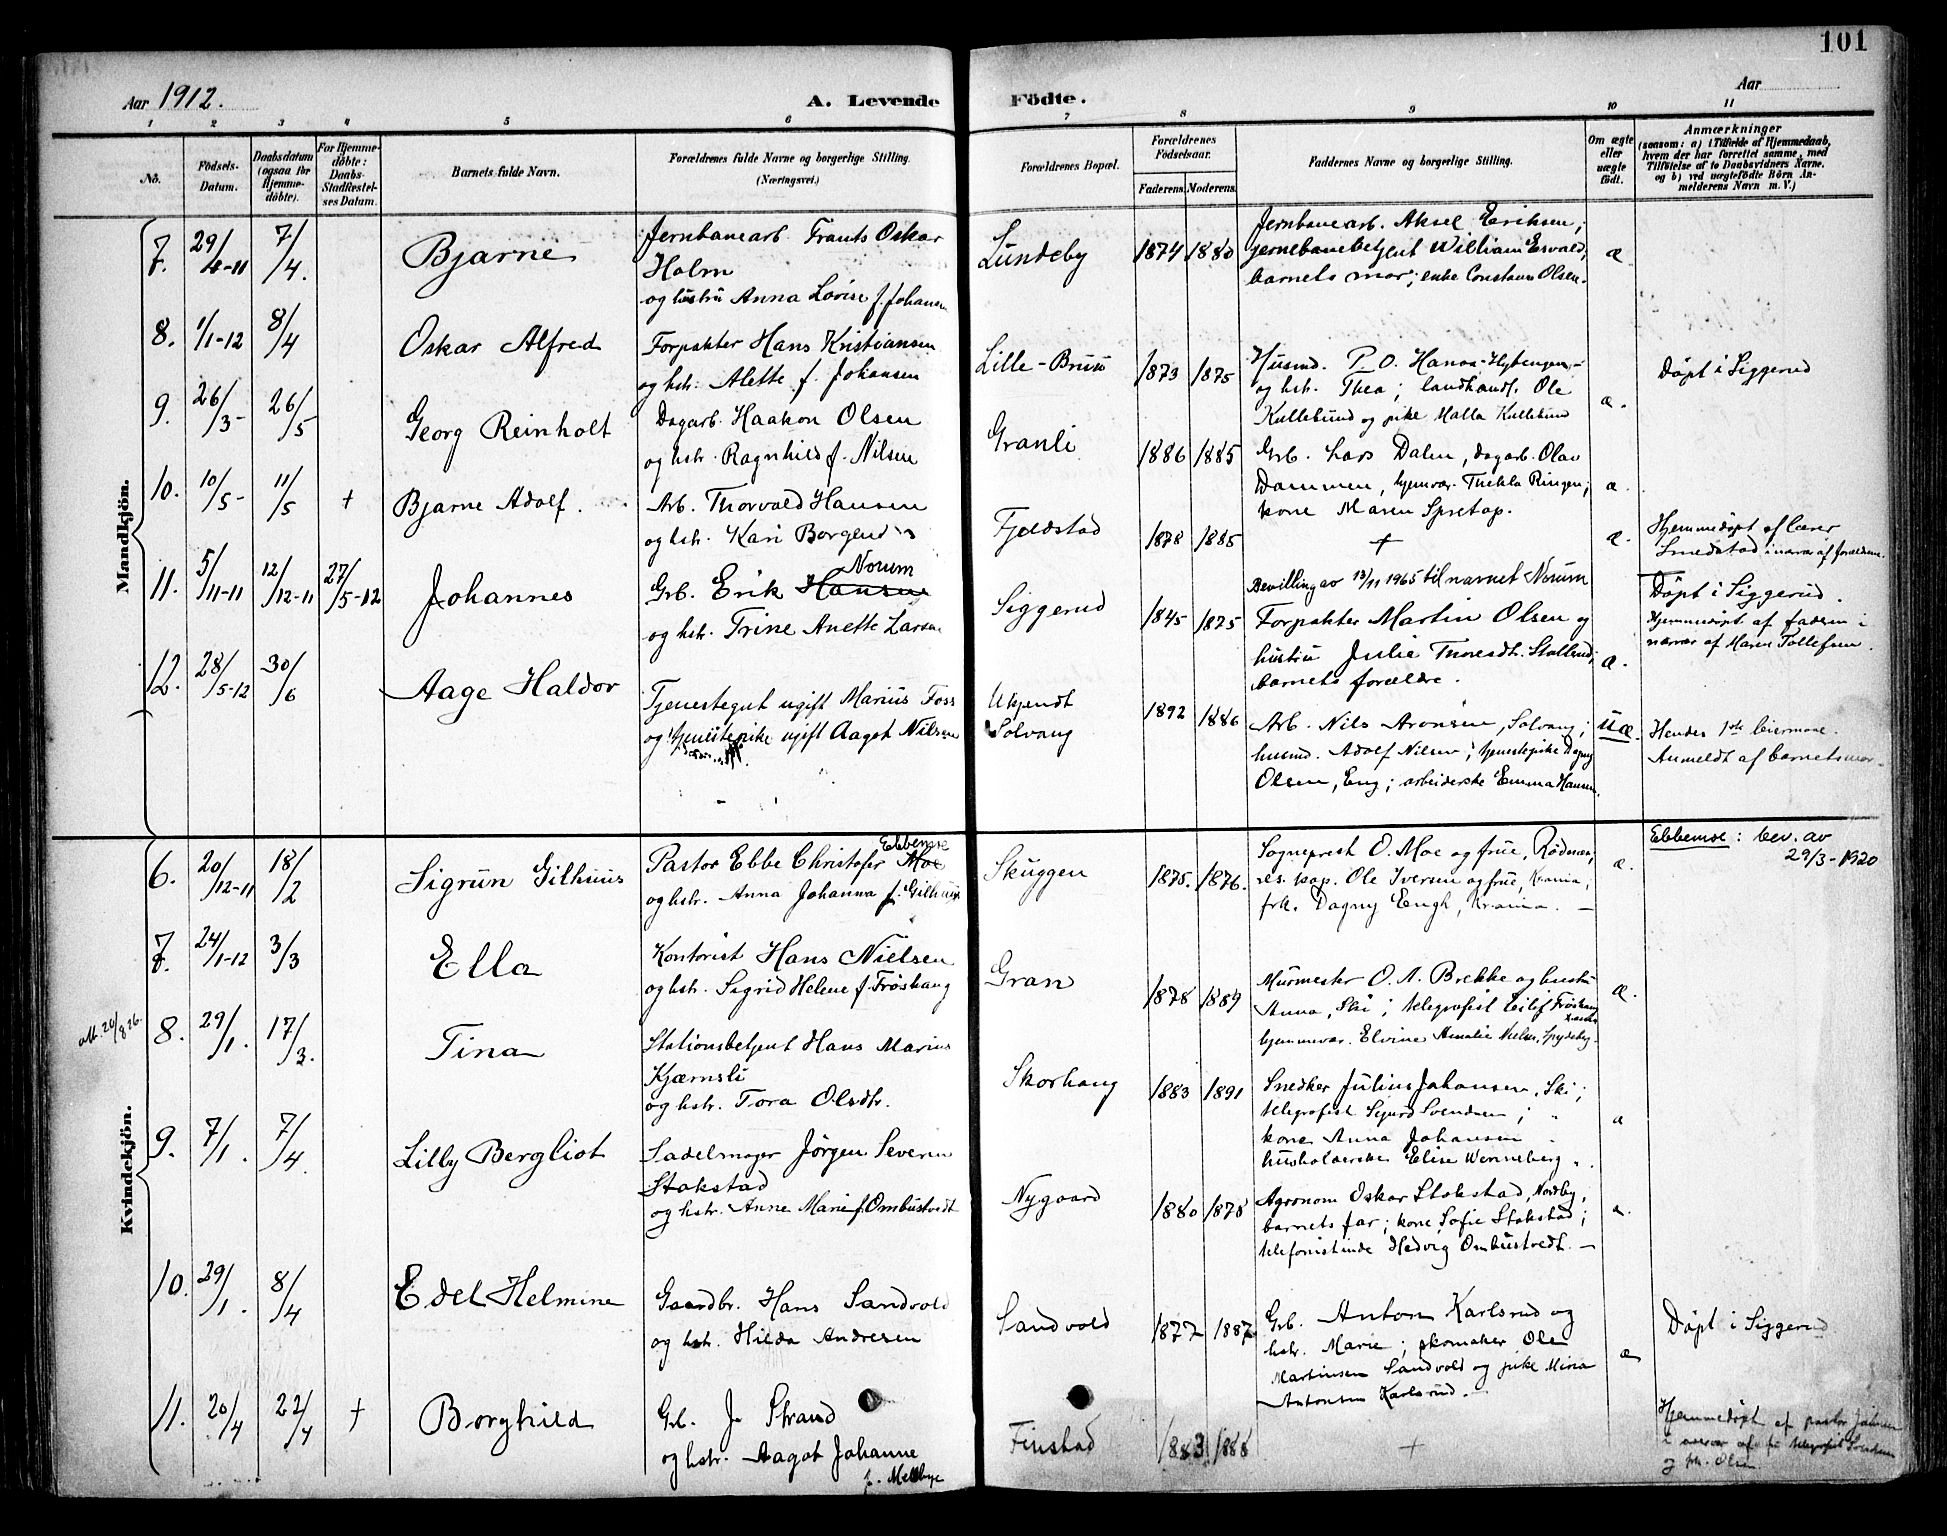 101
Aar 1912.
A. Levende Födte.
Aar
1 2 3 4 5 6 7 8 9 10 11
No.
Födsels-Datum.
Daabsdatum (ogsaa for Hjemme-döbte).
For Hjemme-döbte: Daabs-Stadfæstelses Datum.
Barnets fulde Navn.
Forældrenes fulde Navne og borgerlige Stilling.
(Næringsvei.)
Forældrenes Bopæl.
Forældrenes Födselsaar.
Faderens. Moderens.
Faddernes Navne og borgerlige Stilling.
Om ægte eller uægte födt.
Anmærkninger
(saasom: a) i Tilfælde af Hjemmedaab, hvem der har forrettet samme, med Tilföielse af to Daabsvidners Navne. og b) ved uægtefödte Börn Anmelderens Navn m. V.)
Mandkjön.
7. 29/4-11 7/4. Bjarne
Jernbanearb. Frants Oskar
Holm
og hustru Anna Lovise f. Johansen
Lundeby 1874 1880
Jernbanearb. Aksel Eriksen;
jernebanebetjent William Esvald;
barnets mor; enke Constanse Olsen.
æ
8. 1/1-12 8/4 Oskar Alfred
Forpakter Hans Kristiansen
og hstr. Alette f. Johansen
Lille-Bru 1873 1875
Husmd. P. O. Hanoa-
og hst. Thea; landhandl. Ole
Kullebund og pike Malla Kullebund
æ.
Døpt i Siggerud
9. 26/3- 26/5 Georg Reinholt
Dagarb. Haakon Olsen
og hstr. Ragnhild f. Nilsen
Granli 1886 1885
Grb. Lars Dalen, dagarb. Olav
Dammen, hjemvær. Thekla Ringen;
kone Maren Spretop.
æ.
10. 10/5- 11/5 + Bjarne Adolf.
Arb. Thorvald Hansen
og hstr. Kari Borgerud
Fjeldstad 1878 1885
+
æ.
Hjemmedøpt af lærer
Smedstad i nærv af forældrene.
11. 5/11-11 12/12-11 27/5-12 Johannes
Norum
Grb. Erik Hansen
og hstr. Trine Anette Larsen
Siggerud 1845 1875
Bevilling av 13/11 1965 til navnet Norum
Forpakter Martin Olsen og
hustru Julie Thoresdt. Stallerud;
barnets forældre.
æ.
Døpt i Siggerud.
Hjemmedøpt af faderen i
nærvær af Maren Tollefsen.
12. 28/5-12 30/6 Aage Haldor
Tjenestegut ugift Marius Foss
og tjenestepike ugift Aagot Nilsen
Ukjendt
Solvang
1892 1886
Arb. Nils Aronsen, Solvang;
husmd. Adolf Nilsen; tjenestepike Dagny
Olsen, Eng; arbeiderske Emma Hansen.
uæ.
Hendes 1ste leiermaal.
Anmeldt af barnets mor.
Kvindekjön.
6. 20/12-11 18/2 Sigrun Gilhuus
Ebbemoe
Pastor Ebbe Christofer Moe
og hstr. Anna Johanna f. Gilhuus
Skuggen 1875. 1876.
Sogneprest O. Moe og frue, Rødnes,
res. kap. Ole Iversen og frue, Krania,
frk. Dagny Engh, Krania. —
æ.
Ebbemoe: bev. av
29/3-1920
7. 24/1-12 3/3 Ella
Kontorist Hans Nielsen
og hstr. Sigrid Helene f. Frøshaug
Gran 1878 1889
Murmester O. A. Brekke og hustru
Anna, Ski; telegrafist Eilif Frøshaug
hjemmevær. Elvine Amalie Nielsen, Spydebg.
æ.
att. 20/8 26.
8. 29/1. 17/3. Tina
Stationsbetjent Hans Marius
Kjærnsli
og hstr. Tora Olsdtr.
Skorhaug 1883 1891
Snedker Julius Johansen, Ski;
telegrafist Sigurd Svendsen; "
kone Anna Johansen "
husholderske Elise Wenneberg ".
æ
9. 7/1. 7/4. Lilly Bergliot
Sadelmager Jørgen Severin
Stokstad
og hstr. Anne Marie f. Ombustvedt
Nygaard 1880 1878
Agronom Oskar Stokstad, Nordby;
barnets far; kone Sofie Stokstad;
telefonistinde Hedvig Ombustvedt. —
æ.
10. 29/1. 8/4 Edel Helmine
Gaardbr. Hans Sandvold
og hstr. Hilda Andresen
Sandvold 1877 1887
Grb. Anton Karlsrud og
hstr. Marie; skomaker Ole
Martinsen Sandvold og pike Mina
Antonsen Karlsrud. —
æ
Døpt i Siggerud
11. 20/4 22/4 + Borghild
Grb. J. Strand
og hstr. Aagot Johanne
f. Mellbye
Finstad 1883 1888
+
Hjemmedøpt af pastor
i nærvær af telegrafist Svendsen
og frk. Olsen